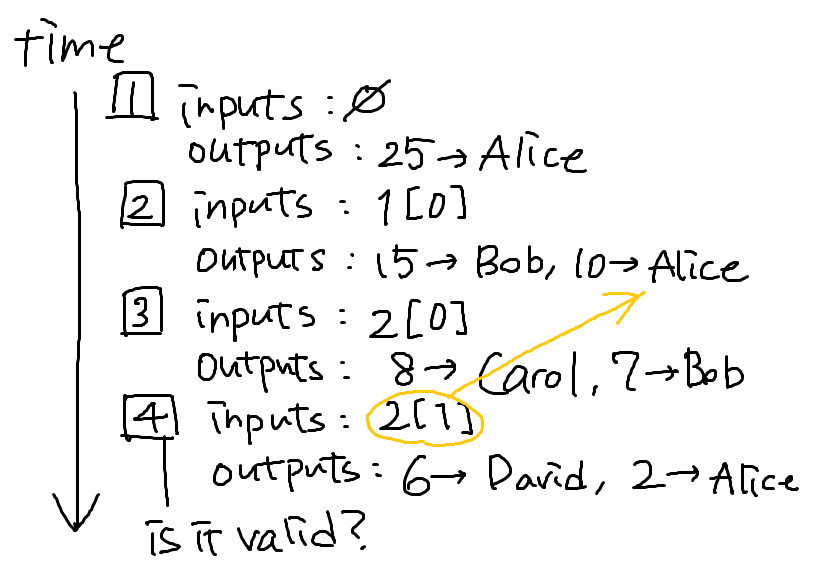 time
1 inputs : ∅
outputs : 25→Alice
2 inputs : 1[0]
outputs : 15→Bob, 10→Alice
3 inputs : 2[0]
outputs : 8→Carol, 7→Bob
4 inputs : 2[1]
outputs : 6→David, 2→Alice
is it valid?